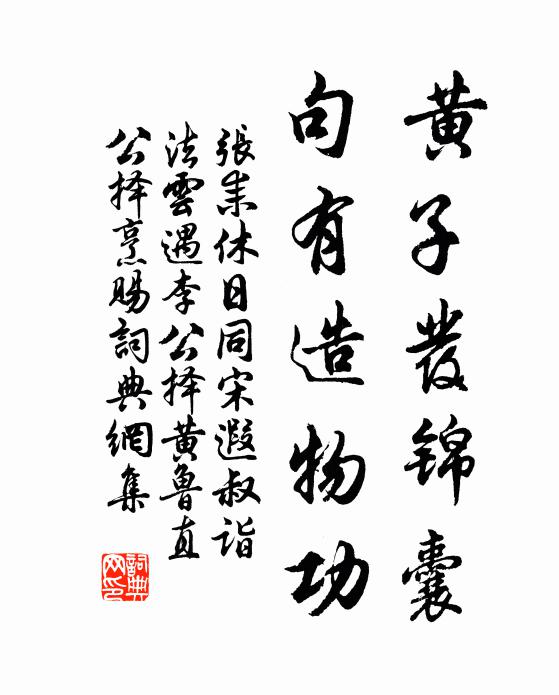 黄子發錦囊
句有造物功
張耒休日同宋遐叔詣
法雲遇李公择黄魯直
公择烹賜詞典網集
詞典網印